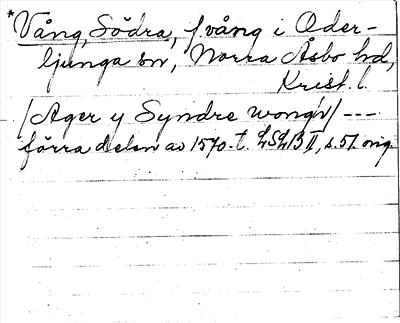 *Vång, Södra, f. vång i Oder-
ljunga sn, Norra Åsbo hd,
Krist. l.
/Ager y Syndre wongn/ ---
förra delen av 1570-t. LSLB II, s. 51. orig.